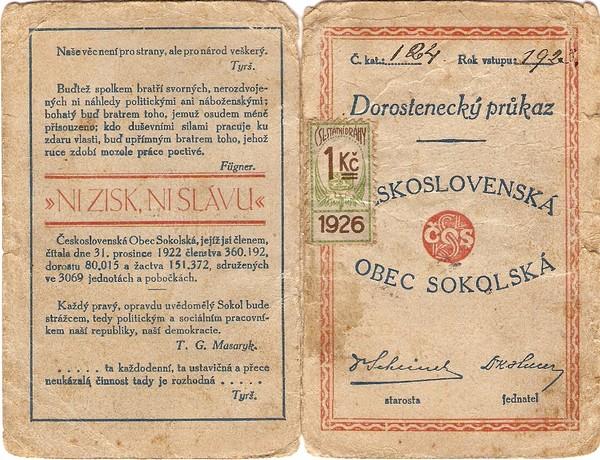 Naše věc není pro strany, ale pro národ veškerý.
Tyrš.
Buďtež spolkem bratří svorných, nerozdvoje-
ných ni náhledy politickými ani náboženskými;
bohatý buď bratrem toho, jemuž osudem méně
přisouzeno; kdo duševními silami pracuje ku
zdaru vlasti, buď upřímným bratrem toho, jehož
ruce zdobí mozole práce poctivé.
Fügner.
»NI ZISK, NI SLÁVU«
Československá Obec Sokolská, jejíž jsi členem,
čítala dne 31. prosince 1922 členstva 360.192,
dorostu 80,015 a žactva 151.372, sdružených
ve 3069 jednotách a pobočkách.
Každý pravý, opravdu uvědomělý Sokol bude
strážcem, tedy politickým a sociálním pracovní-
kem naší republiky, naší demokracie.
T. G. Masaryk.
. . . . . ta každodenní, ta ustavičná a přece
neukázalá činnost tady je rozhodná . . . . .
Tyrš.
Č. kat.: 124 Rok vstupu: 192
Dorostenecký průkaz
ČS. STÁTNÍ DRÁHY
1 Kč
1926
ESKOSLOVENSKÁ
ČSOS
OBEC SOKOLSKÁ
starosta jednatel